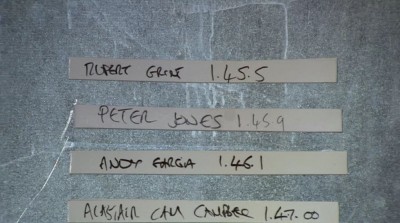 RUPERT GRINT 1.45.5
PETER JONES 1.45.9
ANDY GARCIA 1.46.1
ALASTAIR CAMPBELL 1.47.00